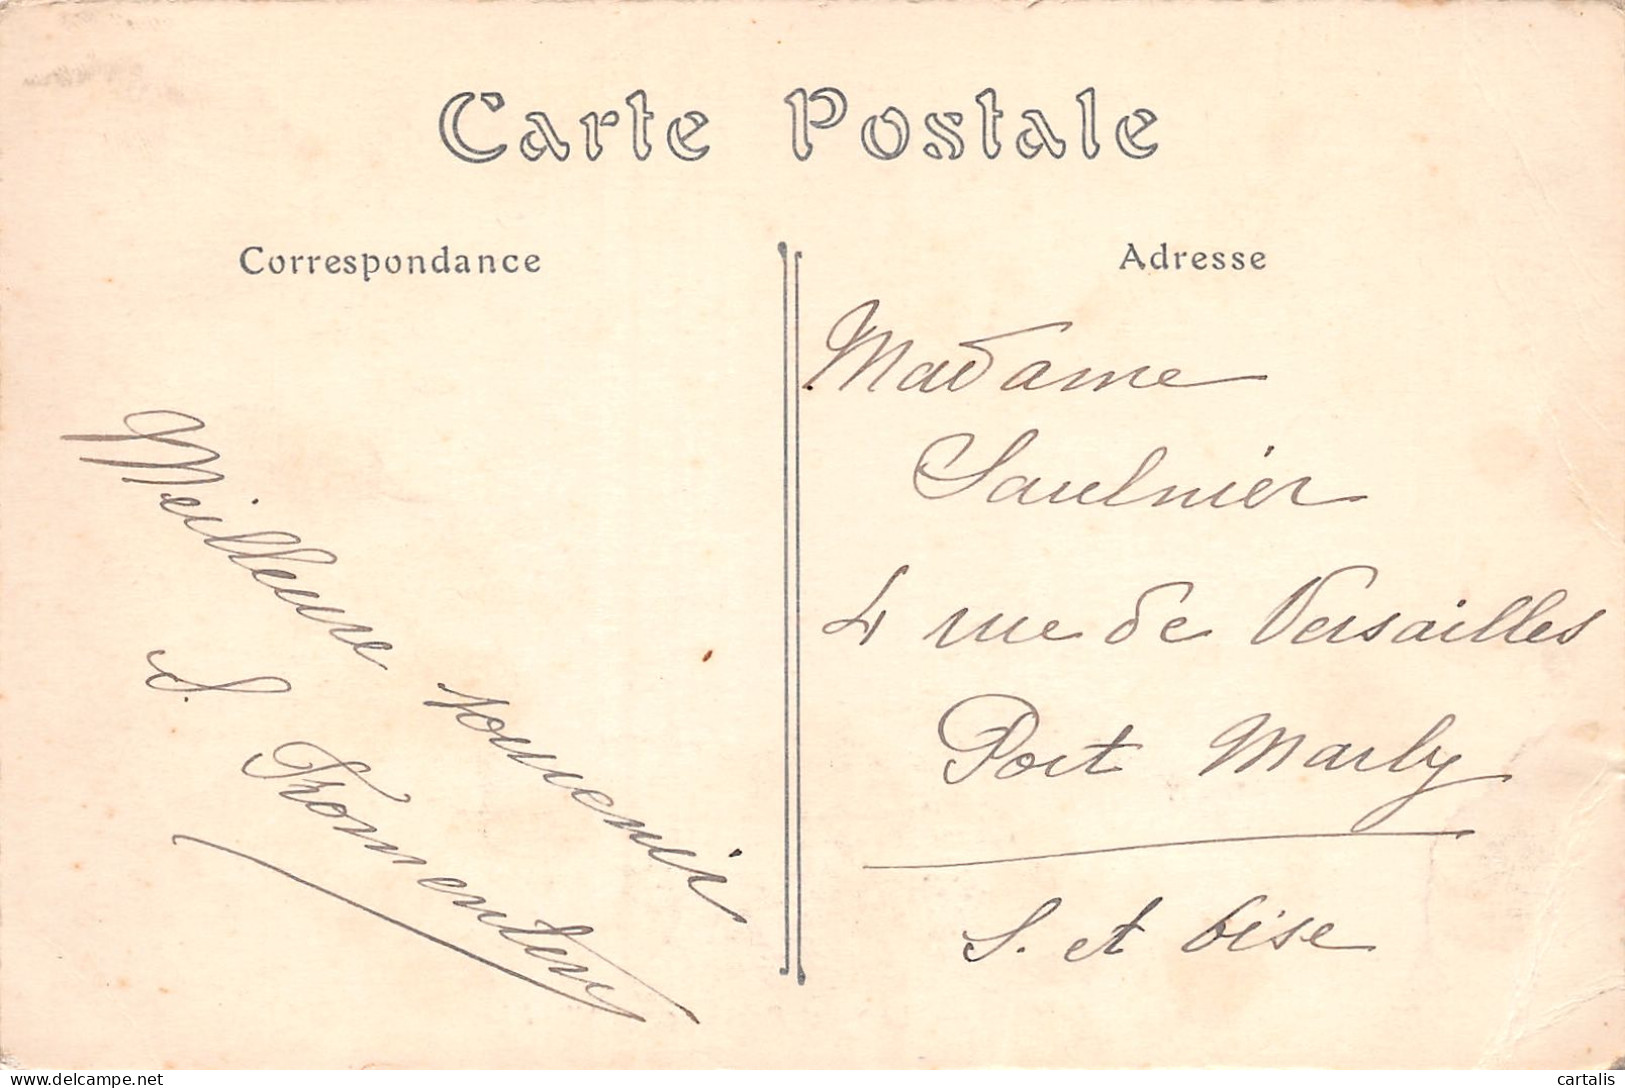 Carte Postale
Correspondance
Meilleure souvenir
S. Fromentin
Adresse
Madame
Saulnier
4 rue de Versailles
Port Marly
S. et Oise
www.delcampe.net
cartalis